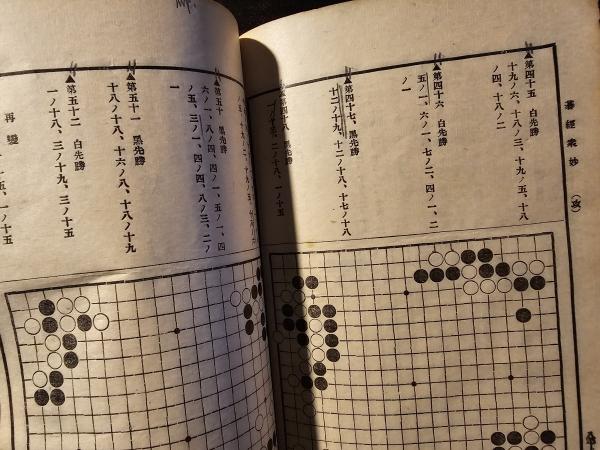 碁経衆妙
▲第四十五 白先勝
十九ノ六、十八ノ三、十九ノ五、十八
ノ四、十八ノ二
▲第四十六 白先勝
五ノ一、六ノ一、七ノ二、四ノ一、二
ノ一
▲第四十七、黒先勝
十二ノ十九、十二ノ十八、十七ノ十八
第四十八 黒先勝
二ノ十八、一ノ十五
▲第五十 黒先勝
六ノ一、八ノ四、四ノ一、五ノ一、四
ノ五、三ノ一、四ノ四、八ノ三、二ノ
一
▲第五十一 黒先勝
十八ノ十八、十六ノ八、十八ノ十九
▲第五十二 白先勝
一ノ十八、三ノ十九、三ノ十五
再變